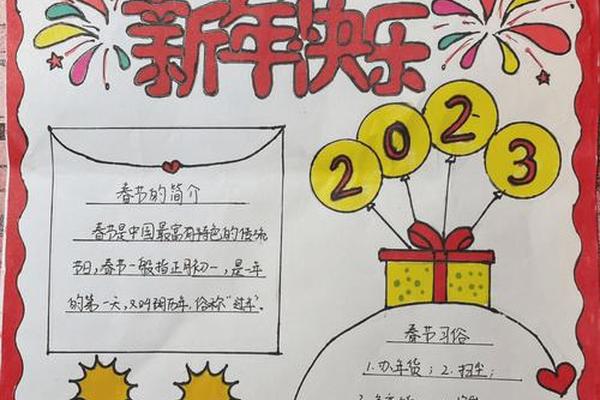 新年快乐
2023
春节的简介
春节是中国最富有特色的传统
节日，春节一般指正月初一，是一年
的第一天，又叫阴历年，俗称“过年”。
春节习俗
1.办年货；2.扫尘；